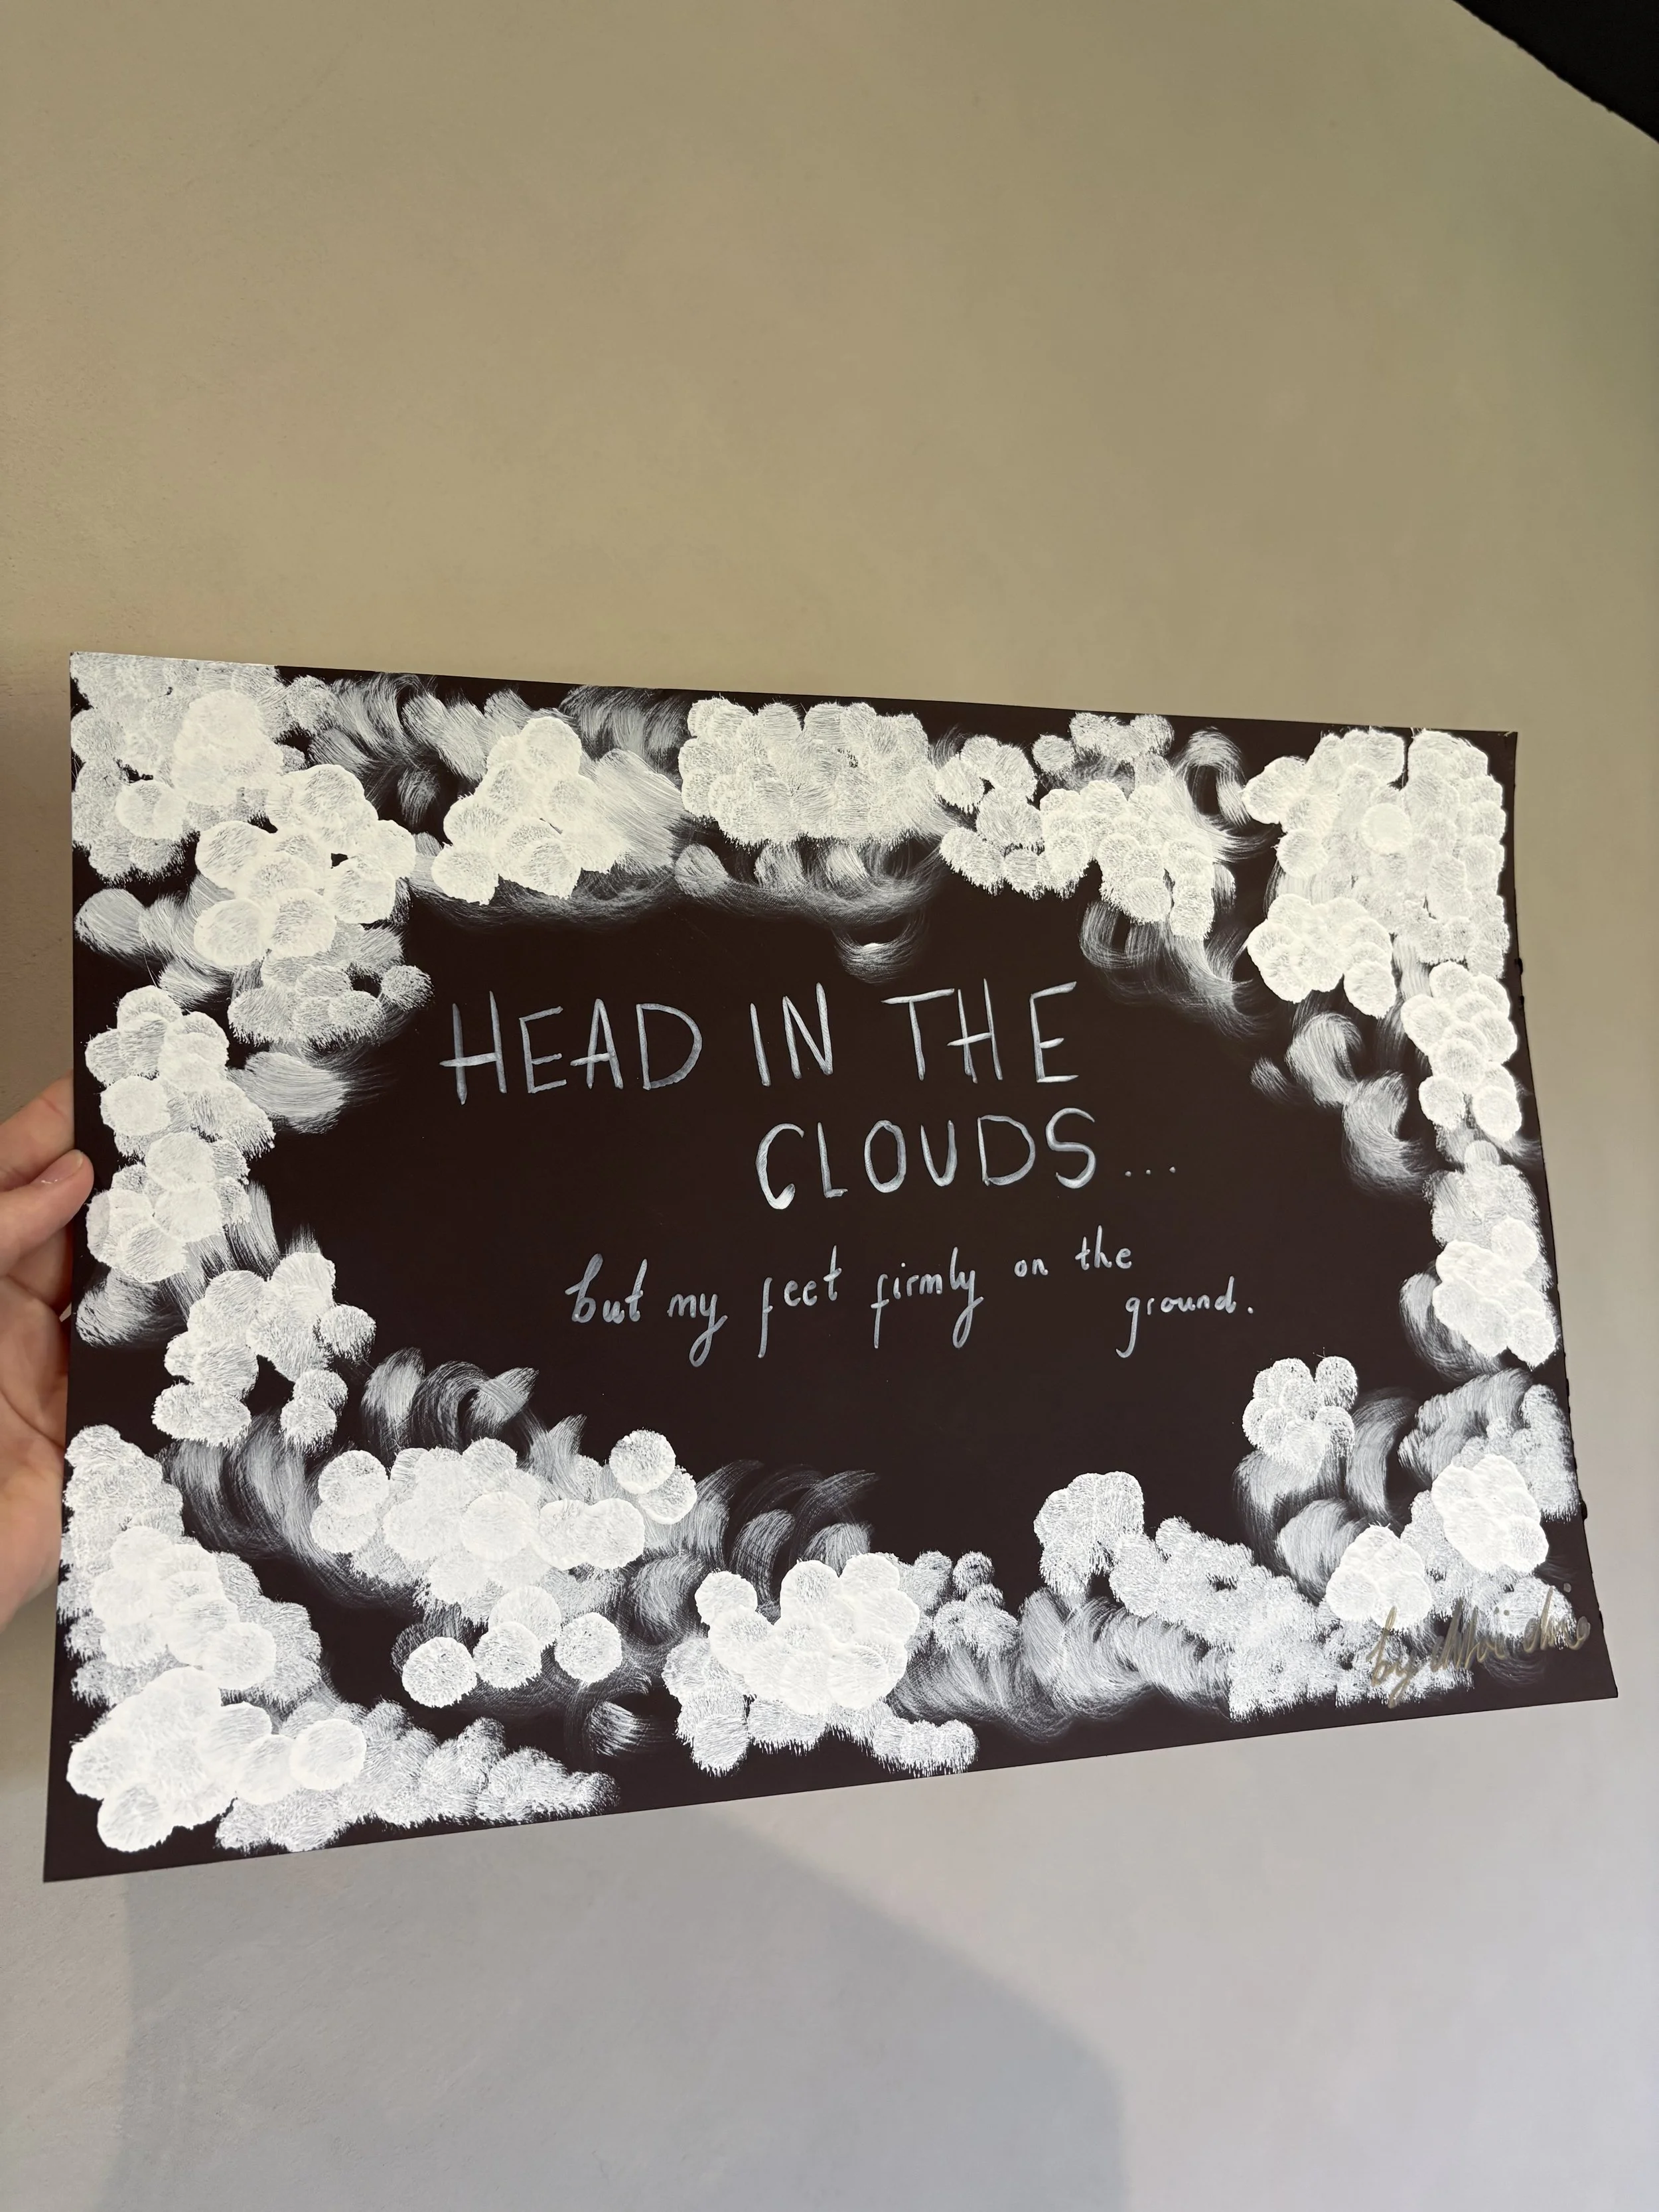 HEAD IN THE
CLOUDS...
but my feet firmly on the
ground.
by